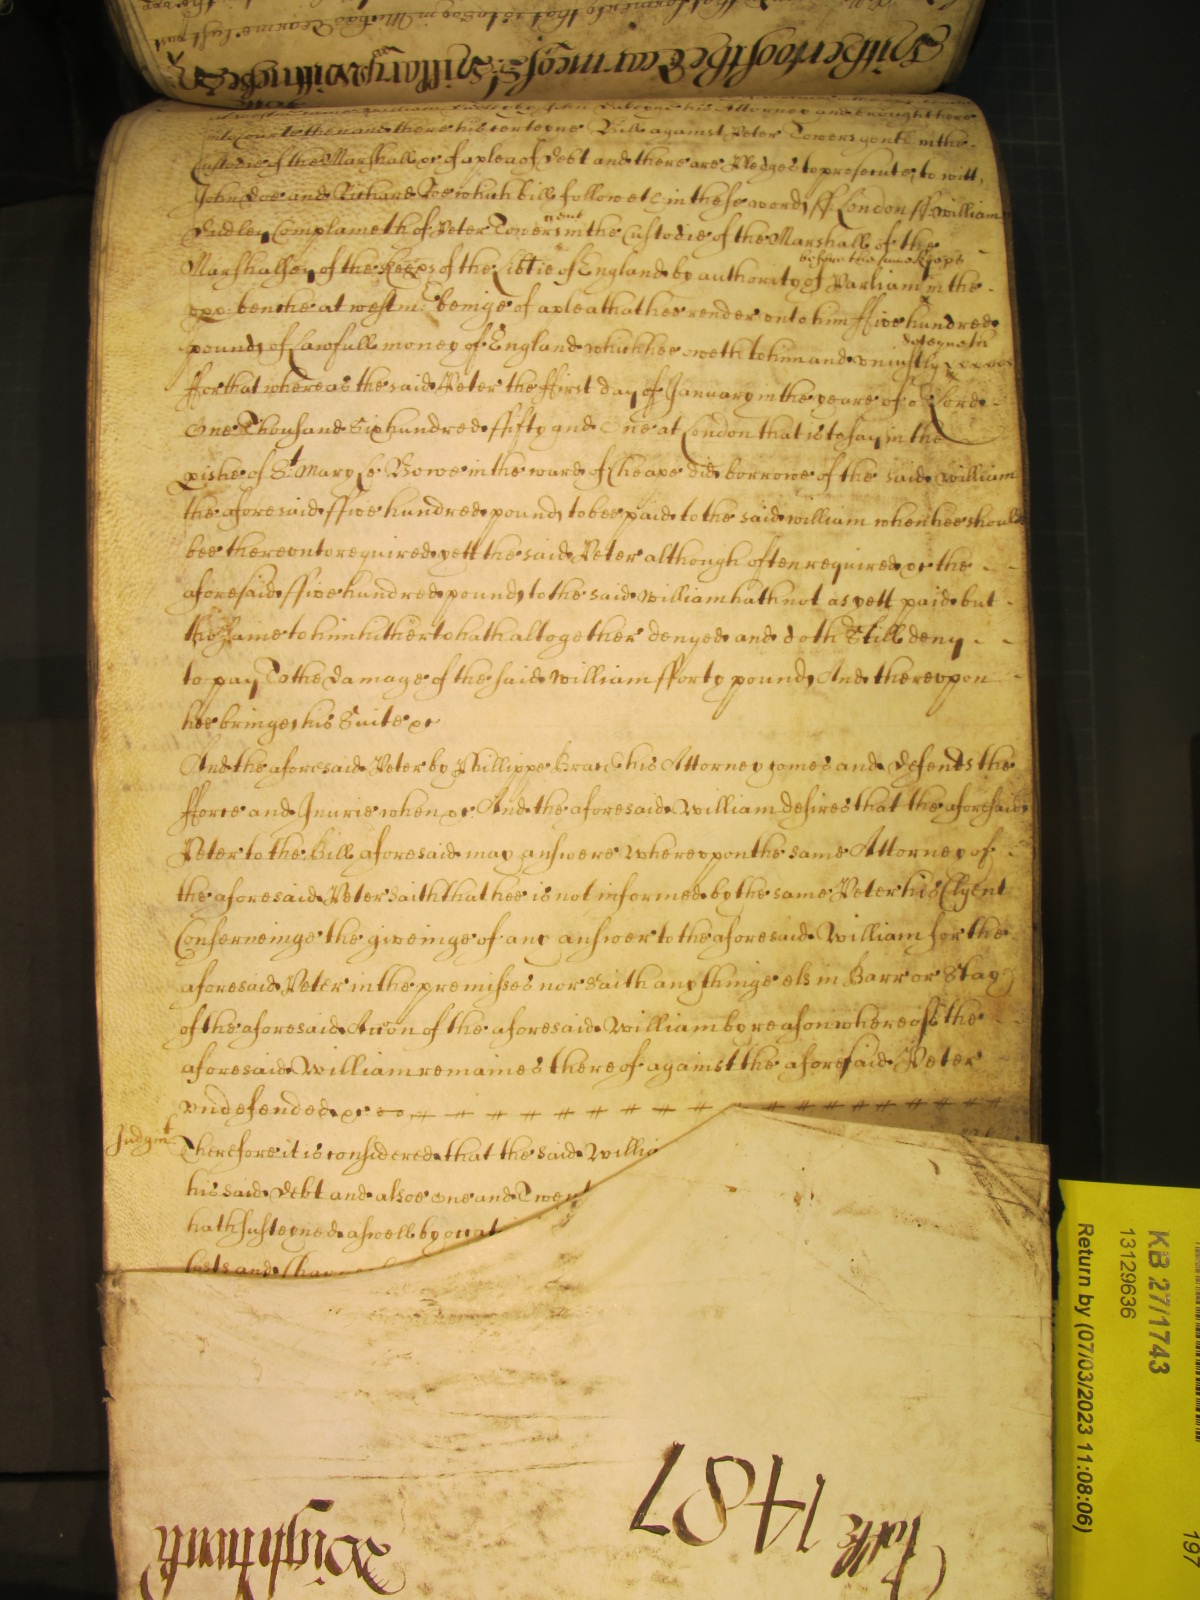 Hitherto of the Tearme of St Hillary wittnes
William Dudley by John his Attorney and brought here
into Court then and there his certeyne Bill against Peter Towers gentl in the
Custodie of the Marshall &c of a plea of Debt and there are Pledges to prosecute, to witt,
John Doe and Richard Roe which bill followeth in these words ss London ss William
Dudley Complaineth of Peter Towers gent in the Custodie of the Marshall of the
Marshalsey of the Keeps of the libtie of England by authority of Parliam in the
before the same Keeps
upp bench at westm: being of a plea that hee render unto him ffive hundred
pounds of Lawfull money of England which hee oweth to him and uniustly
deteyneth
ffor that whereas the said Peter the ffirst day of January in the yeare of o Lord
One Thousand Six hundred ffifty and One at London that is to say in the
pishe of St Mary Le Bowe in the ward of Cheape did borrowe of the said William
the aforesaid ffive hundred pounds to bee paid to the said william when hee should
bee thereonto required yett the said Peter although often required &c the
aforesaid ffive hundred pounds to the said william hath not as yett paid but
the same to him hitherto hath altogether denyed and doth Still deny
to pay To the Damage of the said William fforty pounds And thereupon
hee brings his Suite &c
And the aforesaid Peter by Phillippe his Attorney comes and defends the
fforce and Iniurie when &c And the aforesaid William desires that the aforesaid
Peter to the Bill aforesaid may answere whereuppon the same Attorney of
the aforesaid Peter saith that hee is not informed by the same Peter his Clyent
Conserneinge the giveinge of any answer to the aforesaid William for the
aforesaid Peter in the premisses nor saith any thinge els in Barr or Stay
of the aforesaid Accon of the aforesaid William by reason whereof the
aforesaid William remaines thereof against the aforesaid Peter
undefended &c
Judgmt
Therefore it is considered that the said Willia
his said Debt and alsoe one and Twent
hath susteyned aswell by occat
Costs and Char
1487
Wightwick
KB 27/1743
13129636
Return by (07/03/2023 11:08:06)
197